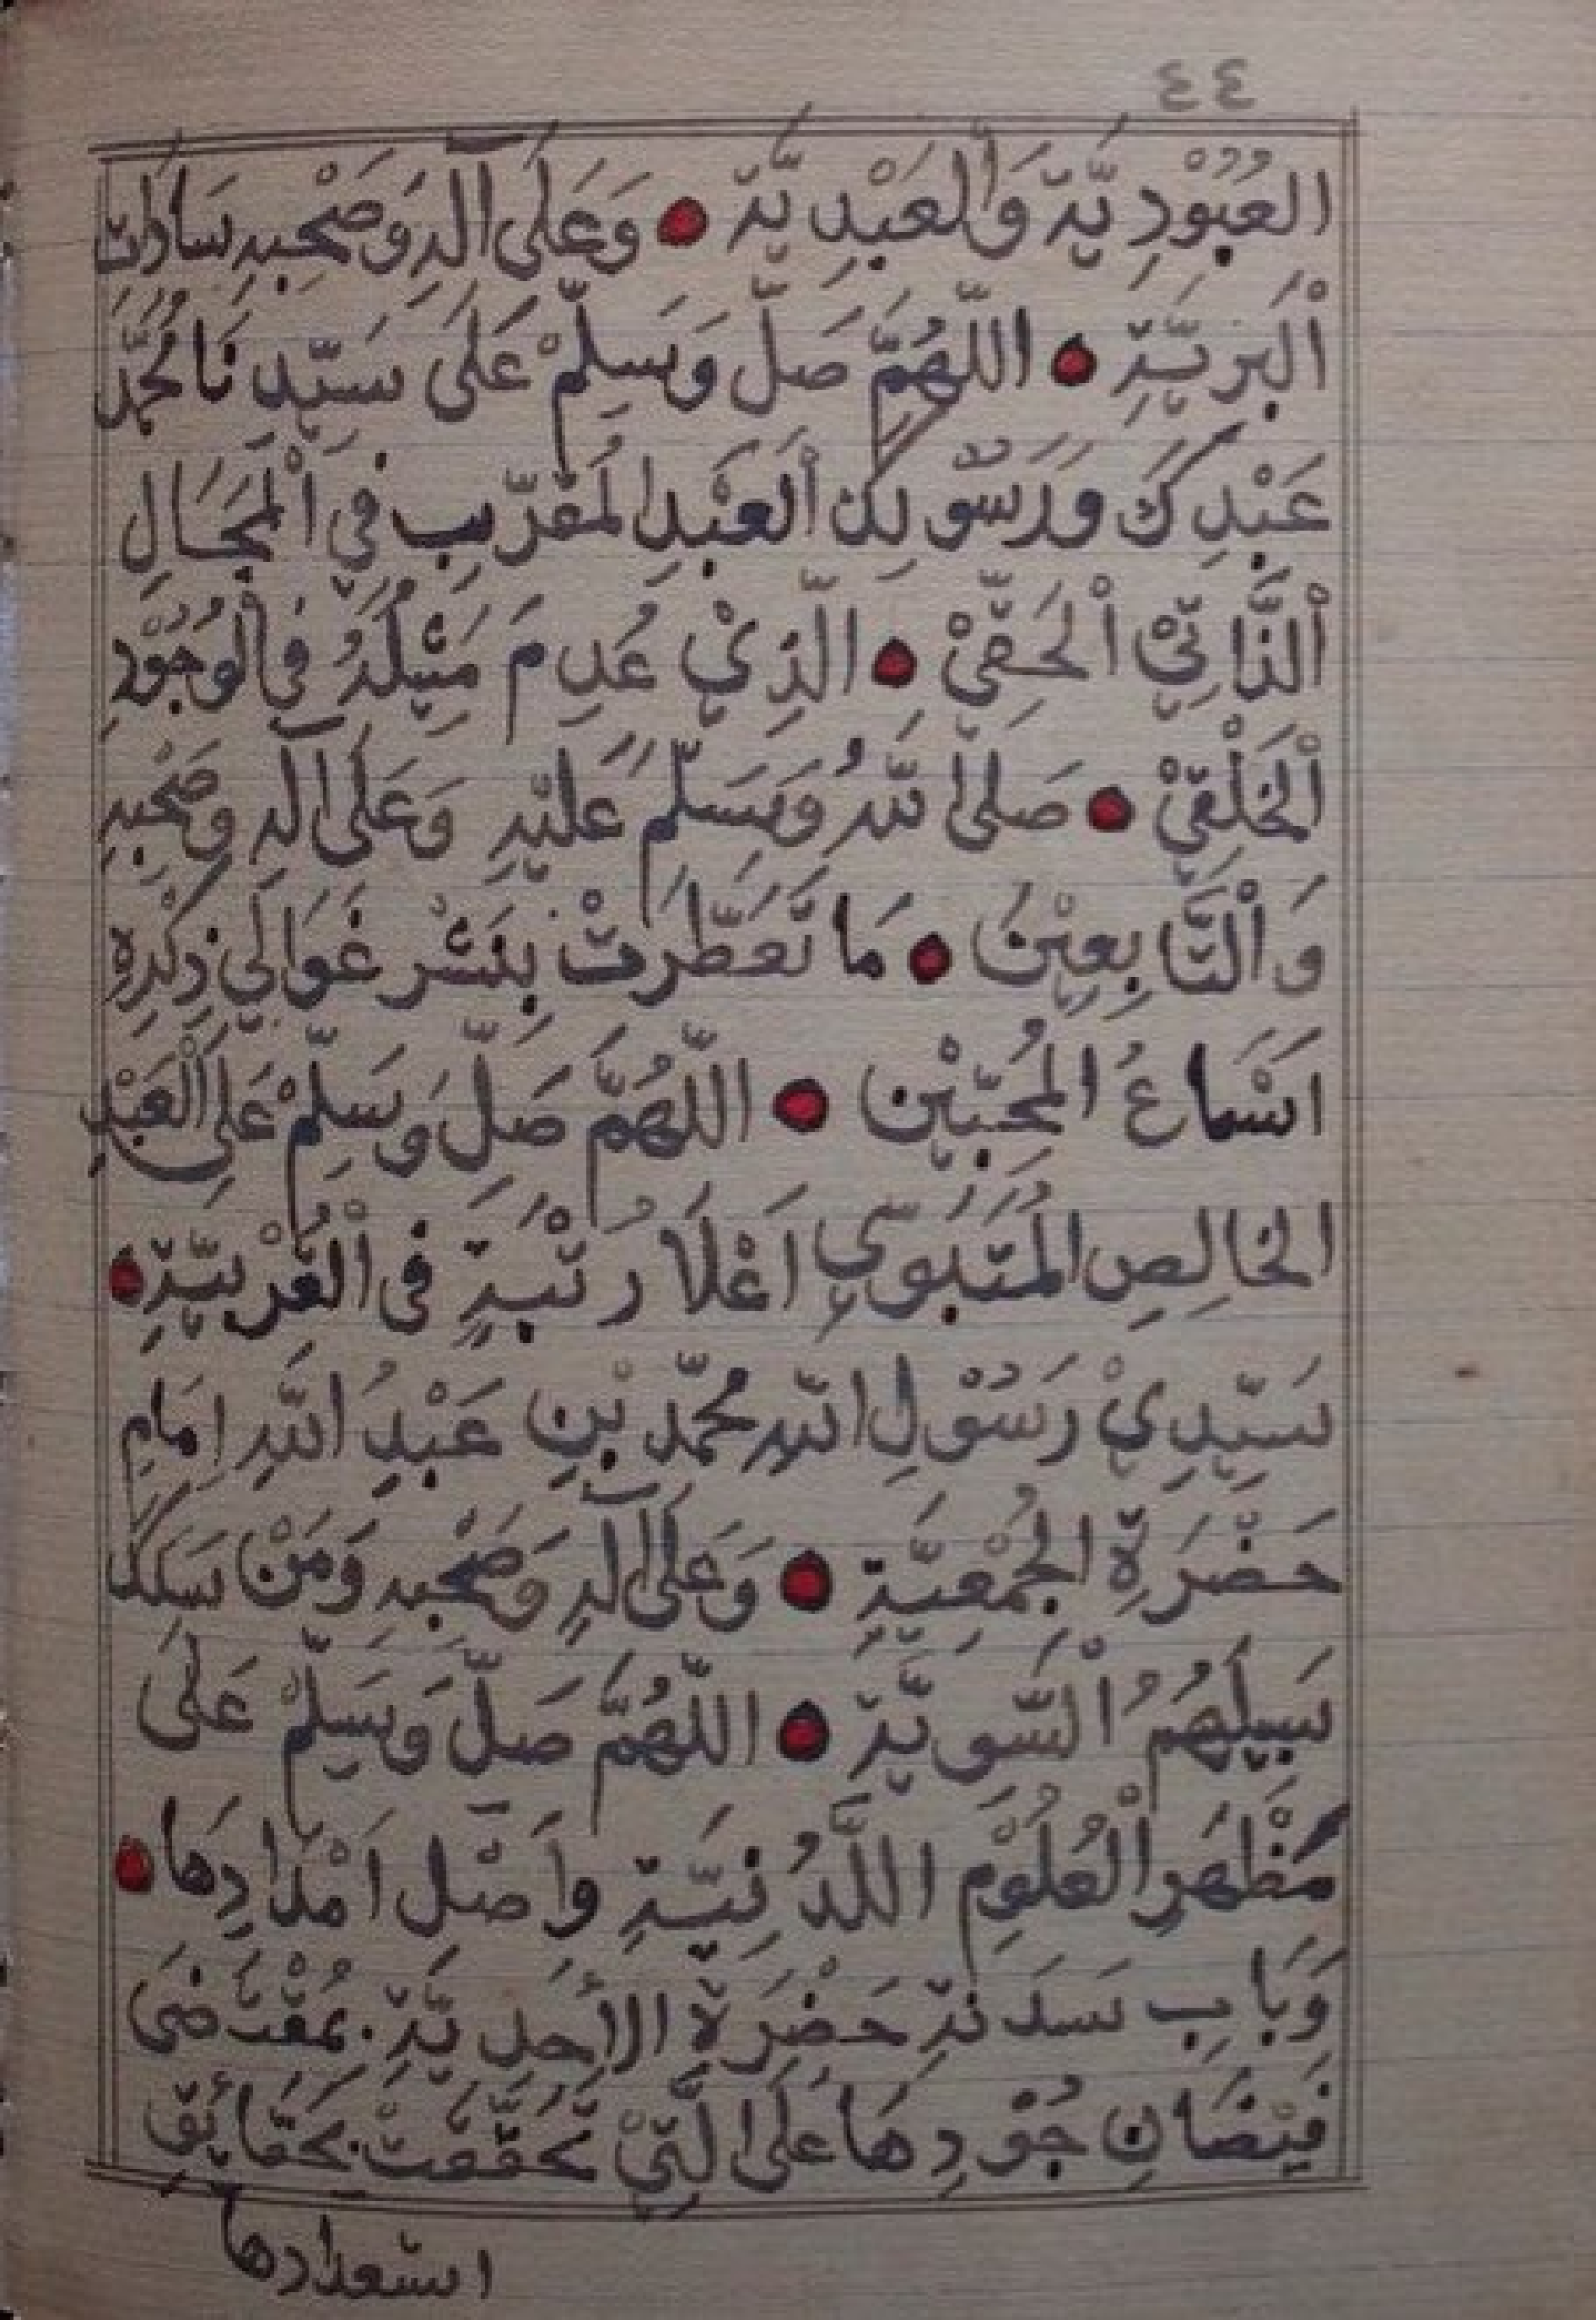 ٤٤
العُبُوْدِيَّة وَالْعَبْدِيَّة ● وَعَلَى آلِهِ وَصَحْبِهِ سَادَات
اْلبَرِيَّةِ ● اللّهُمَّ صَلّ وَسَلِّمْ عَلَى سَيِّدِنَا مُحَمَّدٍ
عَبْدِكَ وَرَسُوْلِكَ اْلعَبْدِ المُقَرَّبِ فِي اْلمَجَالِ
اْلذَّاتِيْ اْلحَقِّيْ ● الَّذِيْ عُدِمَ مَثِيْلُهُ فِي اْلوُجُوْدِ
اْلخَلْقِيْ ● صَلى اللهُ وَسَلَّمَ عَلَيْهِ وَعَلَى آلِهِ وَصَحْبِهِ
وَاْلتَّابِعِيْنَ ● مَا تَعَطَّرَتْ بِنَشْرِ غَوَالِي ذِكْرِهِ
اَسْمَاعُ المُحِبِّيْن ● اللّهُمَّ صَلِّ وَسَلِّمْ عَلَى اْلعَبْدِ
الخَالِصِ المُتَبَوِّءِ اَعْلَا رُتْبَةٍ فى اْلقُرْبِيَّةِ ●
سَيِّدِيْ رَسُوْلِ اللهِ محمّد بْنِ عَبْدِ اللهِ اِمَامِ
حَضْرَةِ الجَمْعِيَّةِ ● وَعَلَى آلِهِ وَصَحْبِهِ وَمَنْ سَلَكَ
سَبِيلَهُمُ اْلسَّوِيَّة ● اللّهُمَّ صَلِّ وَسَلِّمْ عَلَى
مَظْهَرِ اْلعُلُوْمِ اللَّدُنِيَّةِ وَاَصْل اَمْدَادِهَا ●
وَبَابِ سَدَنَةِ حَضْرَةِ الأحَدِيَّةِ. بمُقْتَضَى
فَيْضَانِ جُوْدِهَا عَلَى الَّتِيْ تَحَقَّقَتْ بحَقَائِق
اسْعدادها